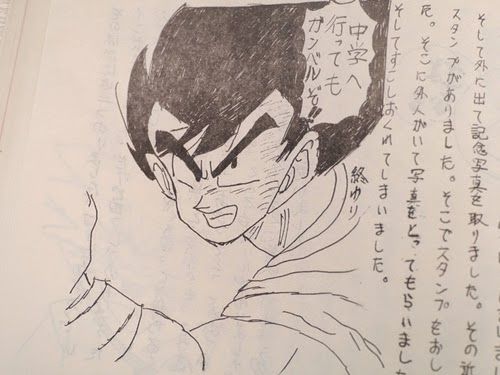 そして外に出て記念写真を取りました。その近
スタンプがありました。そこでスタンプをおし
た。そこに外人がいて写真をとってもらいました
そしてすこしおくれてしまいました。
終わり
中学へ
行っても
ガンベルぞ!!